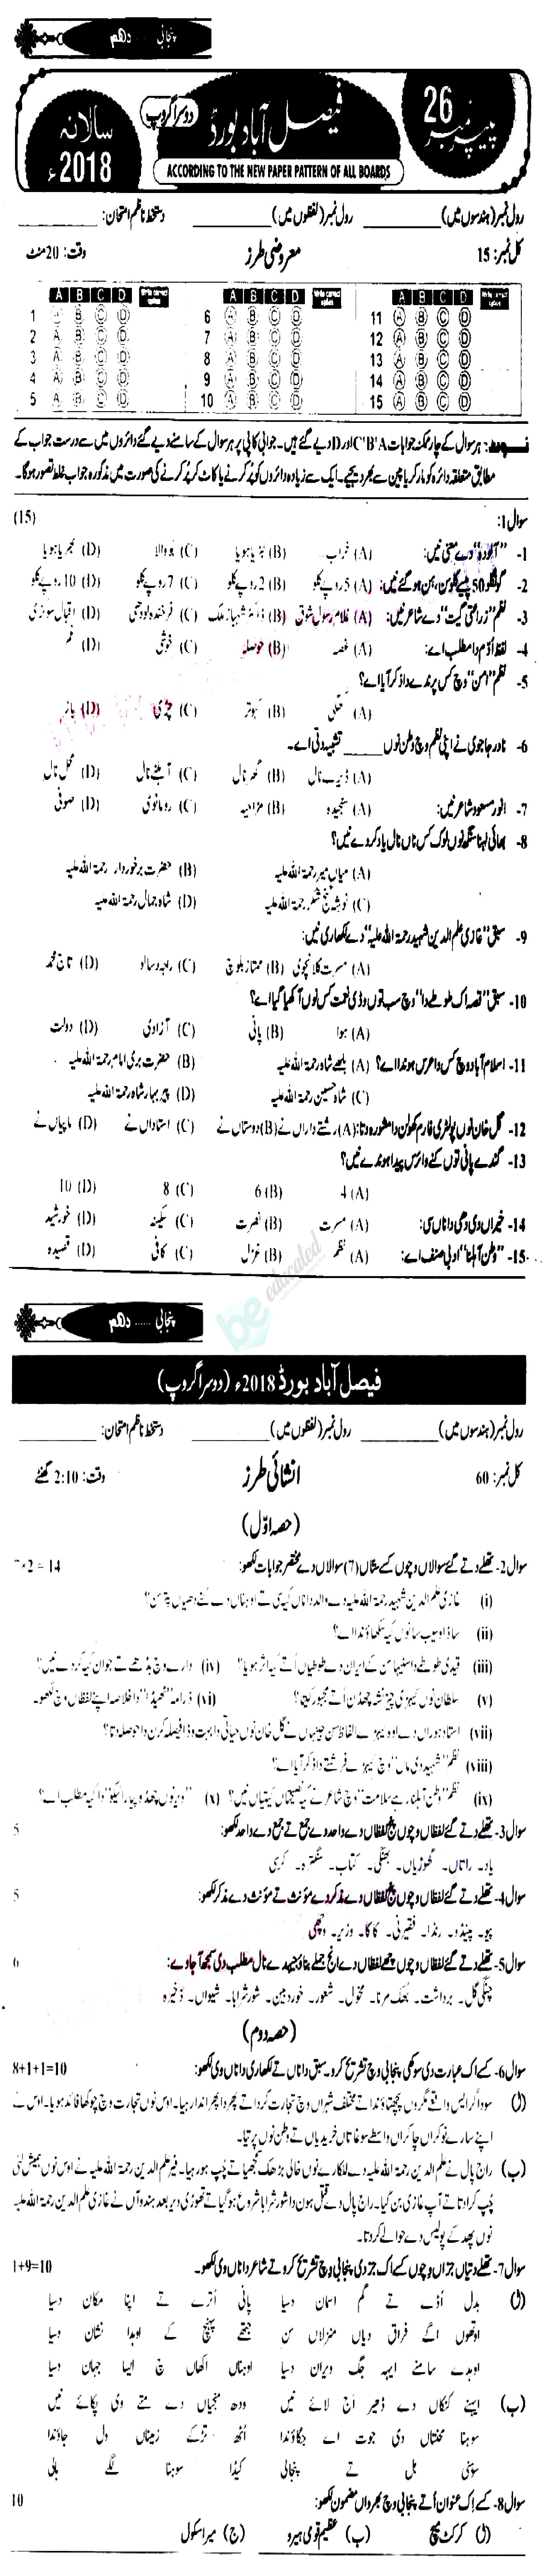 پنجابی ...... دہم
پیپر نمبر 26
فیصل آباد بورڈ
دوسرا گروپ
سالانہ 2018ء
ACCORDING TO THE NEW PAPER PATTERN OF ALL BOARDS
رول نمبر (ہندسوں میں) ________ رول نمبر (لفظوں میں) ________ دستخط ناظم امتحان: ________
کل نمبر: 15 معروضی طرز وقت: 20 منٹ
A B C D Write correct option A B C D Write correct option A B C D Write correct option
1 A B C D 6 A B C D 11 A B C D
2 A B C D 7 A B C D 12 A B C D
3 A B C D 8 A B C D 13 A B C D
4 A B C D 9 A B C D 14 A B C D
5 A B C D 10 A B C D 15 A B C D
نوٹ: ہر سوال کے چار ممکنہ جوابات C'B'A اور D دیے گئے ہیں۔ جوابی کاپی پر ہر سوال کے سامنے دیے گئے دائروں میں سے درست جواب کے
مطابق متعلقہ دائرہ کو مارکر یا پین سے بھر دیجیے۔ ایک سے زیادہ دائروں کو پُر کرنے یا کاٹ کر پُر کرنے کی صورت میں مذکورہ جواب غلط تصور ہوگا۔
سوال 1: (15)
1- "آلودہ" دے معنی نیں: (A) خراب (B) (C) (D)
2- گونگلو 50 پیسے کلو سن، ہن ہو گئے نیں: (A) 5 روپے کلو (B) 2 روپے کلو (C) 7 روپے کلو (D) 10 روپے کلو
3- نظم "زراعتی گیت" دے شاعر نیں: (A) غلام رسول شوق (B) ڈاکٹر شہباز ملک (C) فرخندہ لودھی (D) اقبال
4- لفظ اُدّم دا مطلب اے: (A) غصہ (B) حوصلہ (C) خوشی (D) غم
5- نظم "امن" وچ کس پرندے دا ذکر آیا اے؟
(A) (B) کبوتر (C) چڑی (D) باز
6- نادر جاجوی نے اپنی نظم وچ وطن نوں ____ تشبیہ دتی اے۔
(A) ڈیرے نال (B) گھر نال (C) آہلنے نال (D) محل نال
7- انور مسعود شاعر نیں: (A) سنجیدہ (B) مزاحیہ (C) رومانوی (D) صوفی
8- بھائی لہنا سنگھ نوں لوک کس ناں نال یاد کردے نیں؟
(A) میاں میر رحمۃ اللہ علیہ (B) حضرت برخوردار رحمۃ اللہ علیہ
(C) نوشہ گنج رحمۃ اللہ علیہ (D) شاہ جمال رحمۃ اللہ علیہ
9- سبق "غازی علم الدین شہید رحمۃ اللہ علیہ" دے لکھاری نیں:
(A) مسرت کلانچوی (B) ممتاز بلوچ (C) راجہ رسالو (D) تاج محمد
10- سبق "قصہ اک طوطے دا" وچ سب توں وڈی نعمت کس نوں آکھیا گیا اے؟
(A) ہوا (B) پانی (C) آزادی (D) دولت
11- اسلام آباد وچ کس دا عرس ہوندا اے؟ (A) بلھے شاہ رحمۃ اللہ علیہ (B) حضرت بری امام رحمۃ اللہ علیہ
(C) شاہ حسین رحمۃ اللہ علیہ (D) پیر بہار شاہ رحمۃ اللہ علیہ
12- گل خان نوں پولٹری فارم کھولن دا مشورہ دتا: (A) رشتے داراں نے (B) دوستاں نے (C) استاداں نے (D) ماپیاں نے
13- گندے پانی توں کنے وائرس پیدا ہوندے نیں؟
(A) 4 (B) 6 (C) 8 (D) 10
14- خیراں دی دھی دا ناں سی: (A) مسرت (B) نصرت (C) سکینہ (D) خورشید
15- "وطن آہلنا" ادبی صنف اے: (A) نظم (B) غزل (C) کافی (D) قصیدہ
be educated
پنجابی ...... دہم
فیصل آباد بورڈ 2018ء (دوسرا گروپ)
رول نمبر (ہندسوں میں) ________ رول نمبر (لفظوں میں) ________ دستخط ناظم امتحان: ________
کل نمبر: 60 انشائی طرز وقت: 2:10 گھنٹے
(حصہ اوّل)
سوال 2- تھلے دتے گئے سوالاں وچوں کسے ستاں (7) سوالاں دے مختصر جوابات لکھو: 7×2 = 14
(i) غازی علم الدین شہید رحمۃ اللہ علیہ دے والد دا ناں کیہ سی تے اوہناں دے کنے دھیاں پتر سن؟
(ii) ساڈا وسیب سانوں کیہ سکھاؤندا اے؟
(iii) قیدی طوطے دا سنیہا سن کے ایران دے طوطیاں اُتے کیہ اثر ہویا؟ (iv) دارے وچ بڈھے تے جوان کیہ کردے نیں؟
(v) سلطان نوں کیہڑی چیز نشہ چھڈن اُتے مجبور کیتا؟ (vi) ڈرامہ دا خلاصہ اپنے لفظاں وچ لکھو۔
(vii) استاد ہوراں دے اوہ کیہڑے الفاظ سن جیہناں نے گل خان نوں حیاتی دا بہت وڈا فیصلہ کرن دا حوصلہ دتا؟
(viii) نظم "شہید دی ماں" وچ کیہڑے فرشتے دا ذکر آیا اے؟
(ix) نظم "وطن آہلنا رہے سلامت" وچ شاعر نے کیہ نصیحتاں کیتیاں نیں؟ (x) "ویر نوں چھڈو پیار الیکو" دا کیہ مطلب اے؟
سوال 3- تھلے دتے گئے لفظاں وچوں پنج لفظاں دے واحد دے جمع تے جمع دے واحد لکھو: 5
یاد۔ راتاں۔ گھوڑیاں۔ بھنگی۔ کتاب۔ سنگترہ۔ کرسی
سوال 4- تھلے دتے گئے لفظاں وچوں پنج لفظاں دے مذکر دے مونث تے مونث دے مذکر لکھو: 5
پیو۔ پینڈو۔ رنڈا۔ فقیرنی۔ کاکا۔ وزیر۔ وچھی
سوال 5- تھلے دتے گئے لفظاں وچوں چھے لفظاں دے انج جملے بناؤ جیہدے نال مطلب دی سمجھ آ جاوے: 6
چنگی گل۔ برداشت۔ بھک مرنا۔ مخول۔ شعور۔ خوردبین۔ شور شرابا۔ شیواں۔ ذخیرہ
(حصہ دوم)
سوال 6- کسے اک عبارت دی سوکھی پنجابی وچ تشریح کرو۔ سبق دا ناں تے لکھاری دا ناں وی لکھو: 8+1+1=10
(ا) سوداگر ایس واقعے مگروں پچھتاؤندا تے مختلف شہراں وچ تجارت کردا تے پھر دا پھراندا رہیا۔ اوس نوں تجارت وچ چوکھا فائدہ ہویا۔ اوس نے
اپنے سارے نوکراں چاکراں واسطے سوغاتاں خریدیاں تے وطن نوں پرتیا۔
(ب) راج پال نے علم الدین رحمۃ اللہ علیہ دے للکارے نوں خالی بڑھک سمجھیا تے چُپ ہو رہیا۔ فیر علم الدین رحمۃ اللہ علیہ نے اوس نوں ہمیش لئی
چُپ کرا دتا تے آپ غازی بن گیا۔ راج پال دے قتل ہون دا شور شرابا شروع ہو گیا تے تھوڑی دیر بعد ہندوآں نے غازی علم الدین رحمۃ اللہ علیہ
نوں پھڑ کے پولیس دے حوالے کر دتا۔
سوال 7- تھلے دتیاں جزاں وچوں کسے اک جز دی پنجابی وچ تشریح کرو تے شاعر دا ناں وی لکھو۔ 1+9=10
(ا) بدل اُڈے تے گم اسمان دسیا پانی اُترے تے اپنا مکان دسیا
اوتھوں اگے فراق دیاں منزلاں سن جتھے پہنچ کے اوہدا نشان دسیا
اوہدے سامنے ایہہ جگ ویران دسیا اوہناں اکھاں چ ایسا جہان دسیا
(ب) ایہنے کنکاں دے ڈھیر اج لائے نیں ودھ منجیاں دے متے وی پکائے نیں
سوہنا محنتاں دی جوت اے جگاؤندا اُٹھ تڑکے زمیناں ول جاؤندا
سوہنی بل تے پنجالی کیڈا سوہنا لگے ہالی
سوال 8- کسے اک عنوان اُتے پنجابی وچ بھرواں مضمون لکھو: 10
(ا) کرکٹ میچ (ب) عظیم قومی ہیرو (ج) میرا سکول